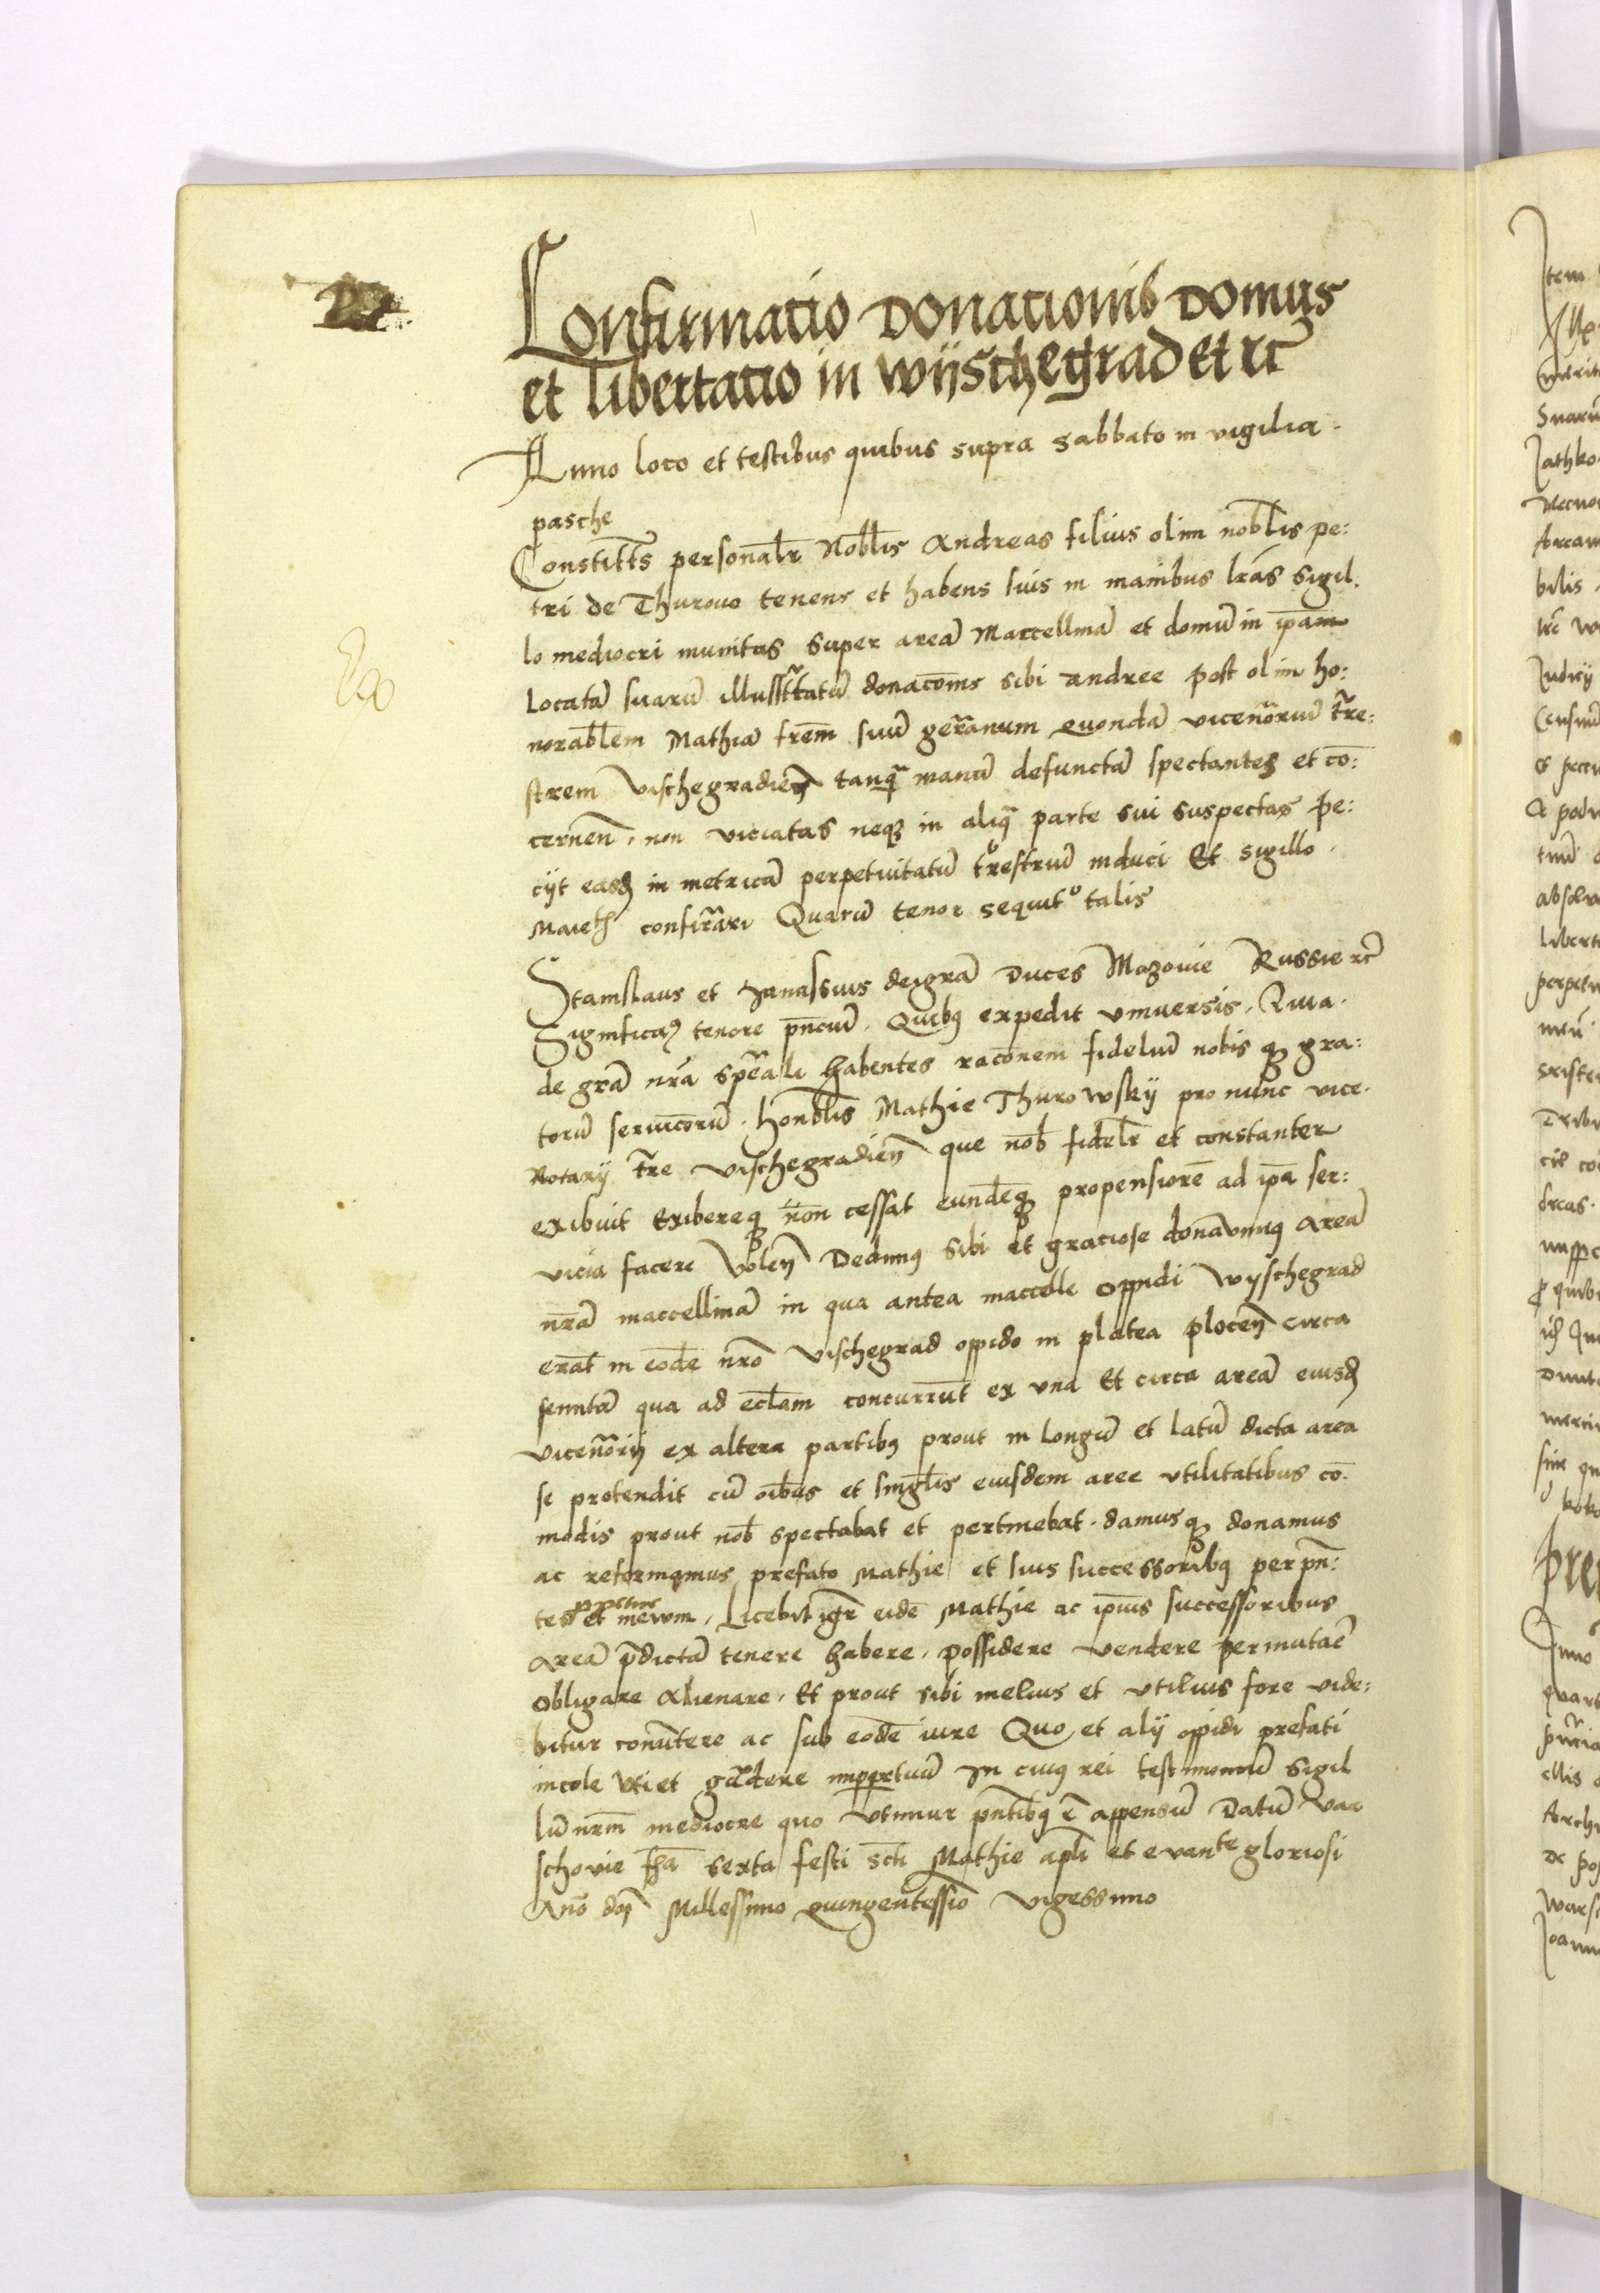 Confirmatio Donationis Domus
et libertatio in wijschegrad Et rc̄
Anno loco et testibus quibus supra Sabbato in vigilia
pasche
Constitūs personalr̄ Nobl̄is Andreas filius olim nobl̄is pe:
tri de Thurowo tenens et habens suis in manibus lr̄as sigil.
lo mediocri munitas super areā Marcellinā et domū in ip̄am
Locatā suarū illustr̄atū donacōnis sibi Andree post olim ho:
norabl̄em Mathiā frēm suū germanum quondā vicenōtariū tr̄re:
strem Vischegradien̄ tanq̄ manū defunctā spectantes et cō:
cernen̄, non viciatas neqʒ in aliq̄ parte sui suspectas pe:
cijt easdʒ in metricā perpetuitatū tr̄restriū induci Et sigillo
Maietʒ confirmari Quarū tenor sequit᷑ talis
Stanislaus et Janussius dei gr̄a Duces Mazovie Russie rc̄
Significamʒ tenore pn̄ciū. Quibus expedit vniuersis. Quia
de gr̄a nr̄a sp̄eali habentes racōnem fideliū nobis qʒ gra:
torū seruicōrū. honbl̄is Mathie Thurowskij pro nunc vice.
Notarij tr̄re Vischegradien̄ que nob̄ fidelr̄ et constanter
exibuit Exibereqʒ non cessat eundēqʒ propensiorē ad ip̄a ser:
uicia facere Volen̄ Dedimus sibi et graciose donauimus Areā
nr̄ā maccellinā in qua antea maccelli oppidi Wyschegrad
erāt in eodē nr̄o Vischegrad oppido in platea plocen̄ circa
semitā qua ad ecl̄am concurrūt ex vna Et circa areā eiusdʒ
vicenōtarij ex altera partibus prout in longū et latū dicta area
se protendit cū oībus et singl̄is eiusdem aree vtilitatibus cō.
modis prout nob̄ spectabat et pertinebat. damusqʒ donamus
ac reformamus prefato Mathie et suis successoribus per pn̄:
tes ppetue et in ewm. Licebit igr̄ eidē Mathie ac ip̄ius successoribus
Areā p̄dictā tenere habere. possidere vendere permutarē
Obligare Alienare. Et prout sibi melius et vtilius fore vide:
bitur conūtere ac sub eodē iure Quo et alij oppidi prefati
incole vti et gaudere imperpetuū In cuius rei testimoniū Sigil
lū nrm̄ mediocre quo Vtimur pn̄tibus ē appensū Datū Var
schovie fr̄ia sexta festi scti Mathie apl̄i et evante gloriosi
Anō dnj Millessimo quingentessīo vigessimo